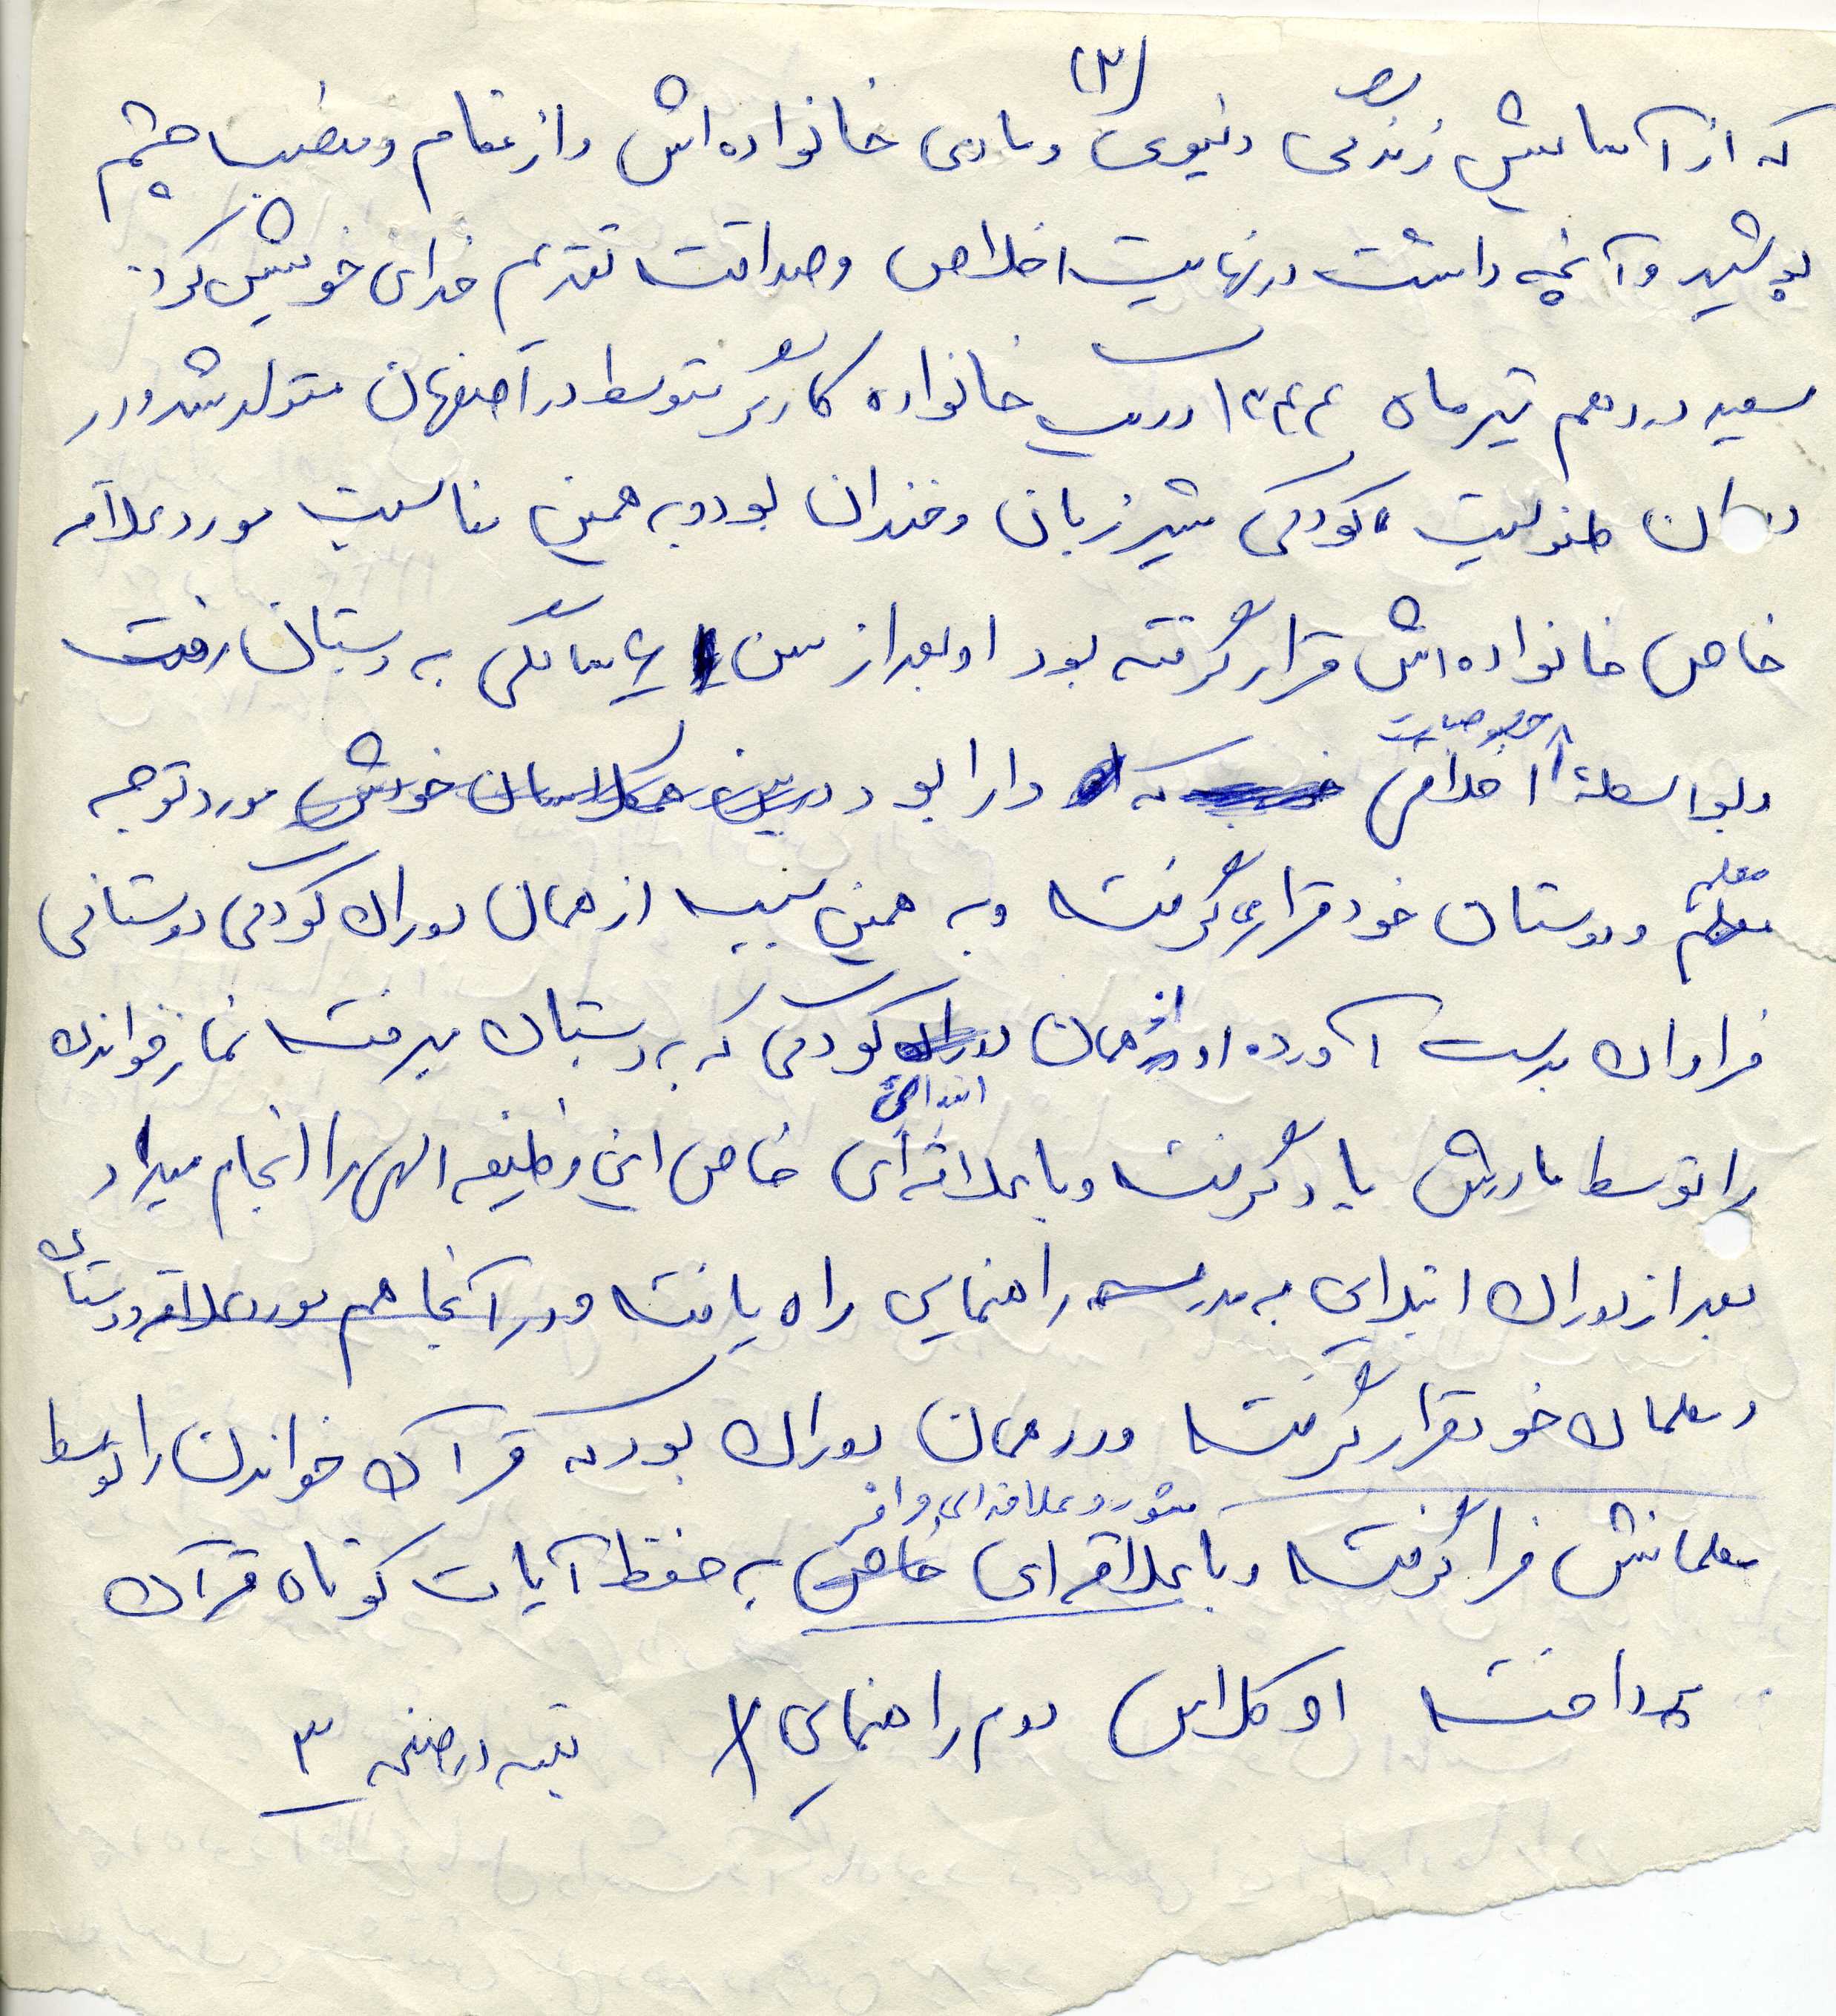 (۲)
که از آسایش زندگی دنیوی و مادی خانواده‌اش و از مقام و منصب چشم
پوشید و آنچه داشت در نهایت اخلاص و صداقت تقدیم خدای خویش کرد.
سعید در دهم تیرماه ۱۳۴۴ در یک خانواده کارگر متوسط در اصفهان متولد شد و در
دوران طفولیت، کودکی شیرزبان و خندان بود و به همین مناسبت مورد علاقه
خاص خانواده‌اش قرار گرفته بود او بعد از سن ۶ سالگی به دبستان رفت
و بواسطهٔ خصوصیات اخلاقی که دارا بود در بین همکلاسان خویش مورد توجه
معلم
معلم و دوستان خود قرار می‌گرفت و به همین سبب از همان دوران کودکی دوستانی
فراوان بدست آورده او از همان دوران کودکی که به دبستان میرفت نماز خواندن
ابتدائی
را توسط مادرش یاد گرفت و با علاقه‌ای خاص این وظیفه الهی را انجام میداد
بعد از دوران ابتدایی به مدرسه راهنمایی راه یافت و در آنجا هم مورد علاقه دوستان
و معلمان خود قرار گرفت و در همان دوران بود که قرآن خواندن را توسط
شور و علاقه‌ای وافر
معلمانش فرا گرفت و با علاقه‌ای خاص به حفظ آیات کوتاه قرآن
پرداخت او کلاس دوم راهنمایی
بقیه در صفحه ۳